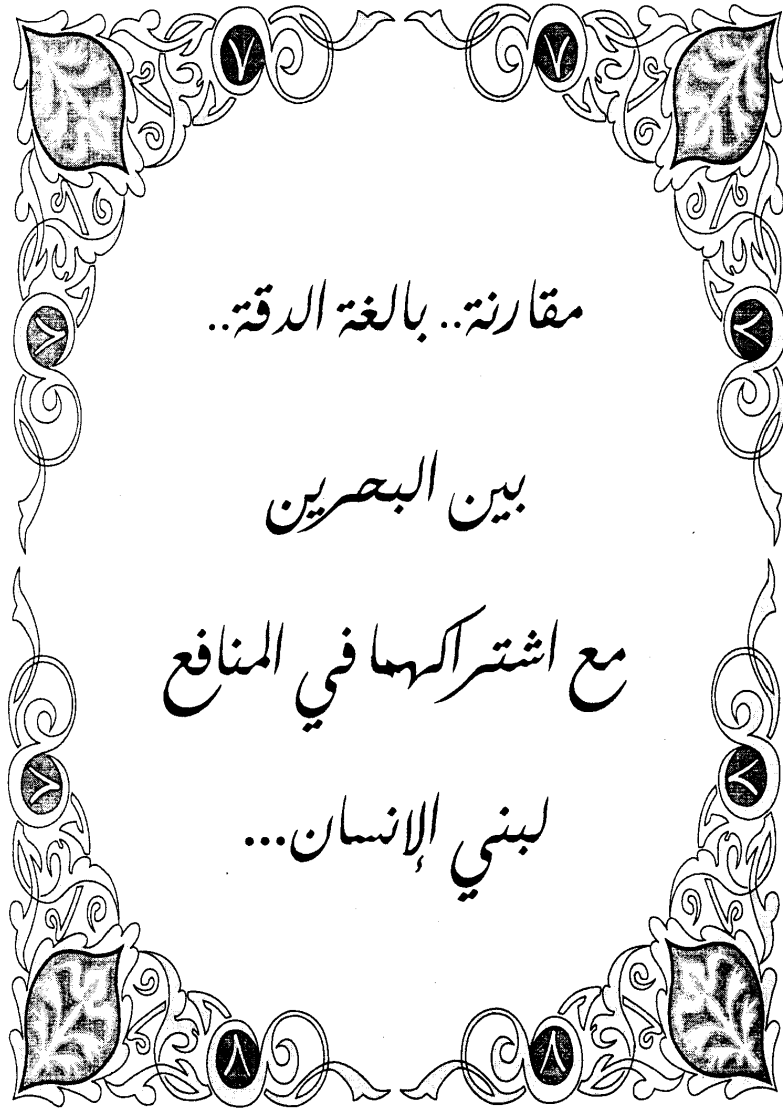 مقارنة.. بالغة الدقة..
بين البحرين
مع اشتراكهما في المنافع
لبني الإنسان...